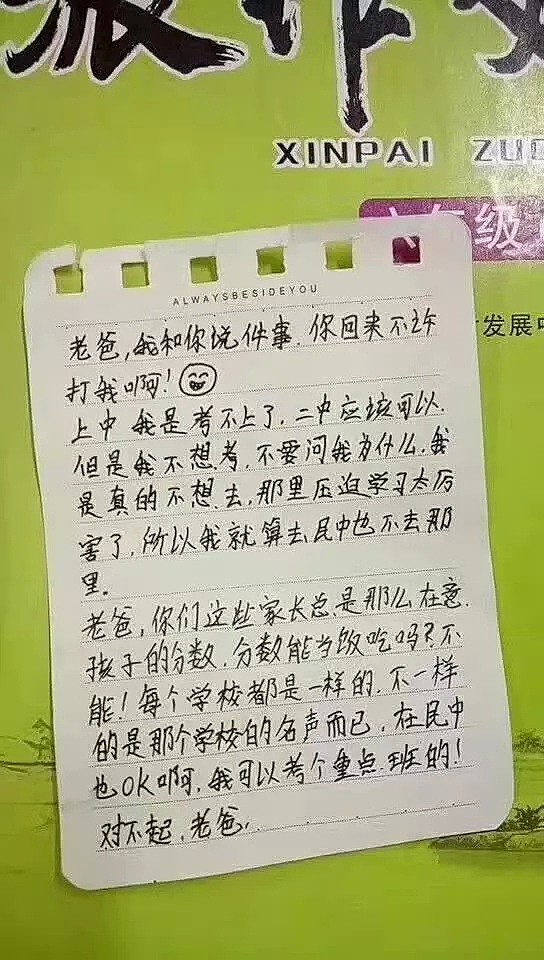 XINPAI ZUO
六年级
发展
ALWAYSBESIDEYOU
老爸，我和你说件事．你回来不许
打我啊！
上中 我是考不上了，二中应该可以．
但是我不想考，不要问我为什么，我
是真的不想去，那里压迫学习太厉
害了，所以我就算去民中也不去那
里。
老爸，你们这些家长总是那么在意
孩子的分数，分数能当饭吃吗？不
能！每个学校都是一样的，不一样
的是那个学校的名声而已，在民中
也OK啊，我可以考个重点班的！
对不起，老爸，